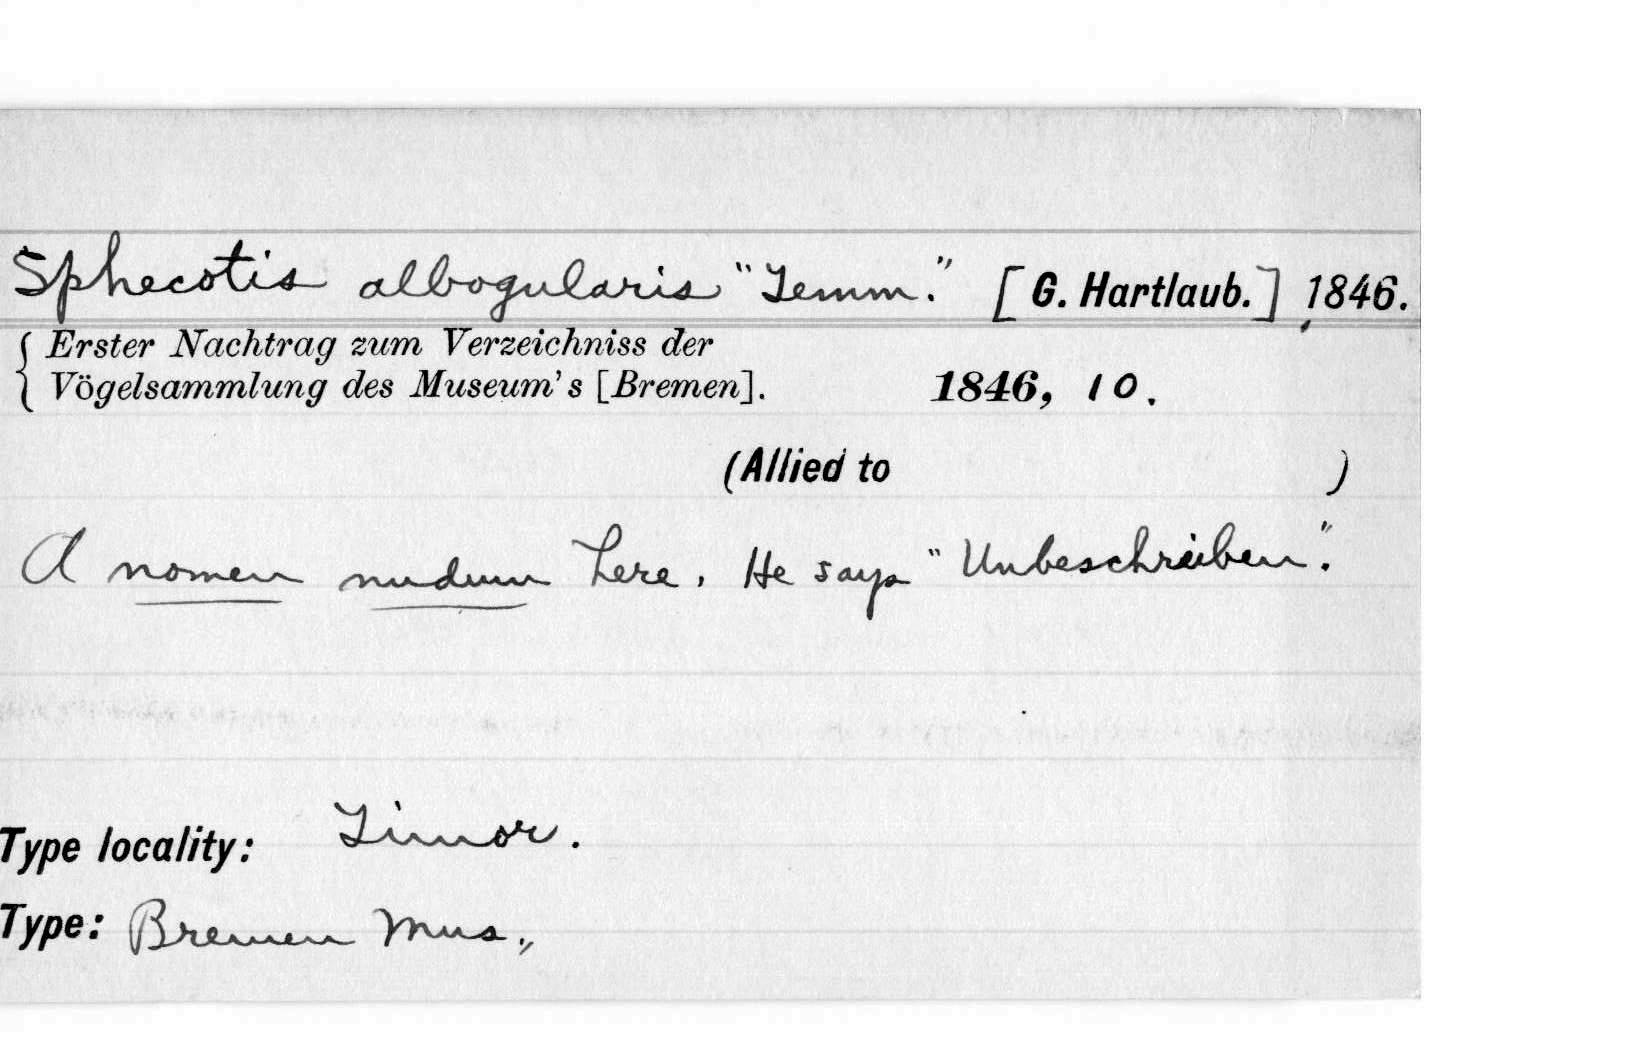 Sphecotis albogularis "Temm." [G. Hartlaub.] 1846.
Erster Nachtrag zum Verzeichniss der
Vögelsammlung des Museum's [Bremen]. 1846, 10.
(Allied to )
A nomen nudum here. He says "Unbeschreiben."
Type locality: Timor.
Type: Bremen Mus.,